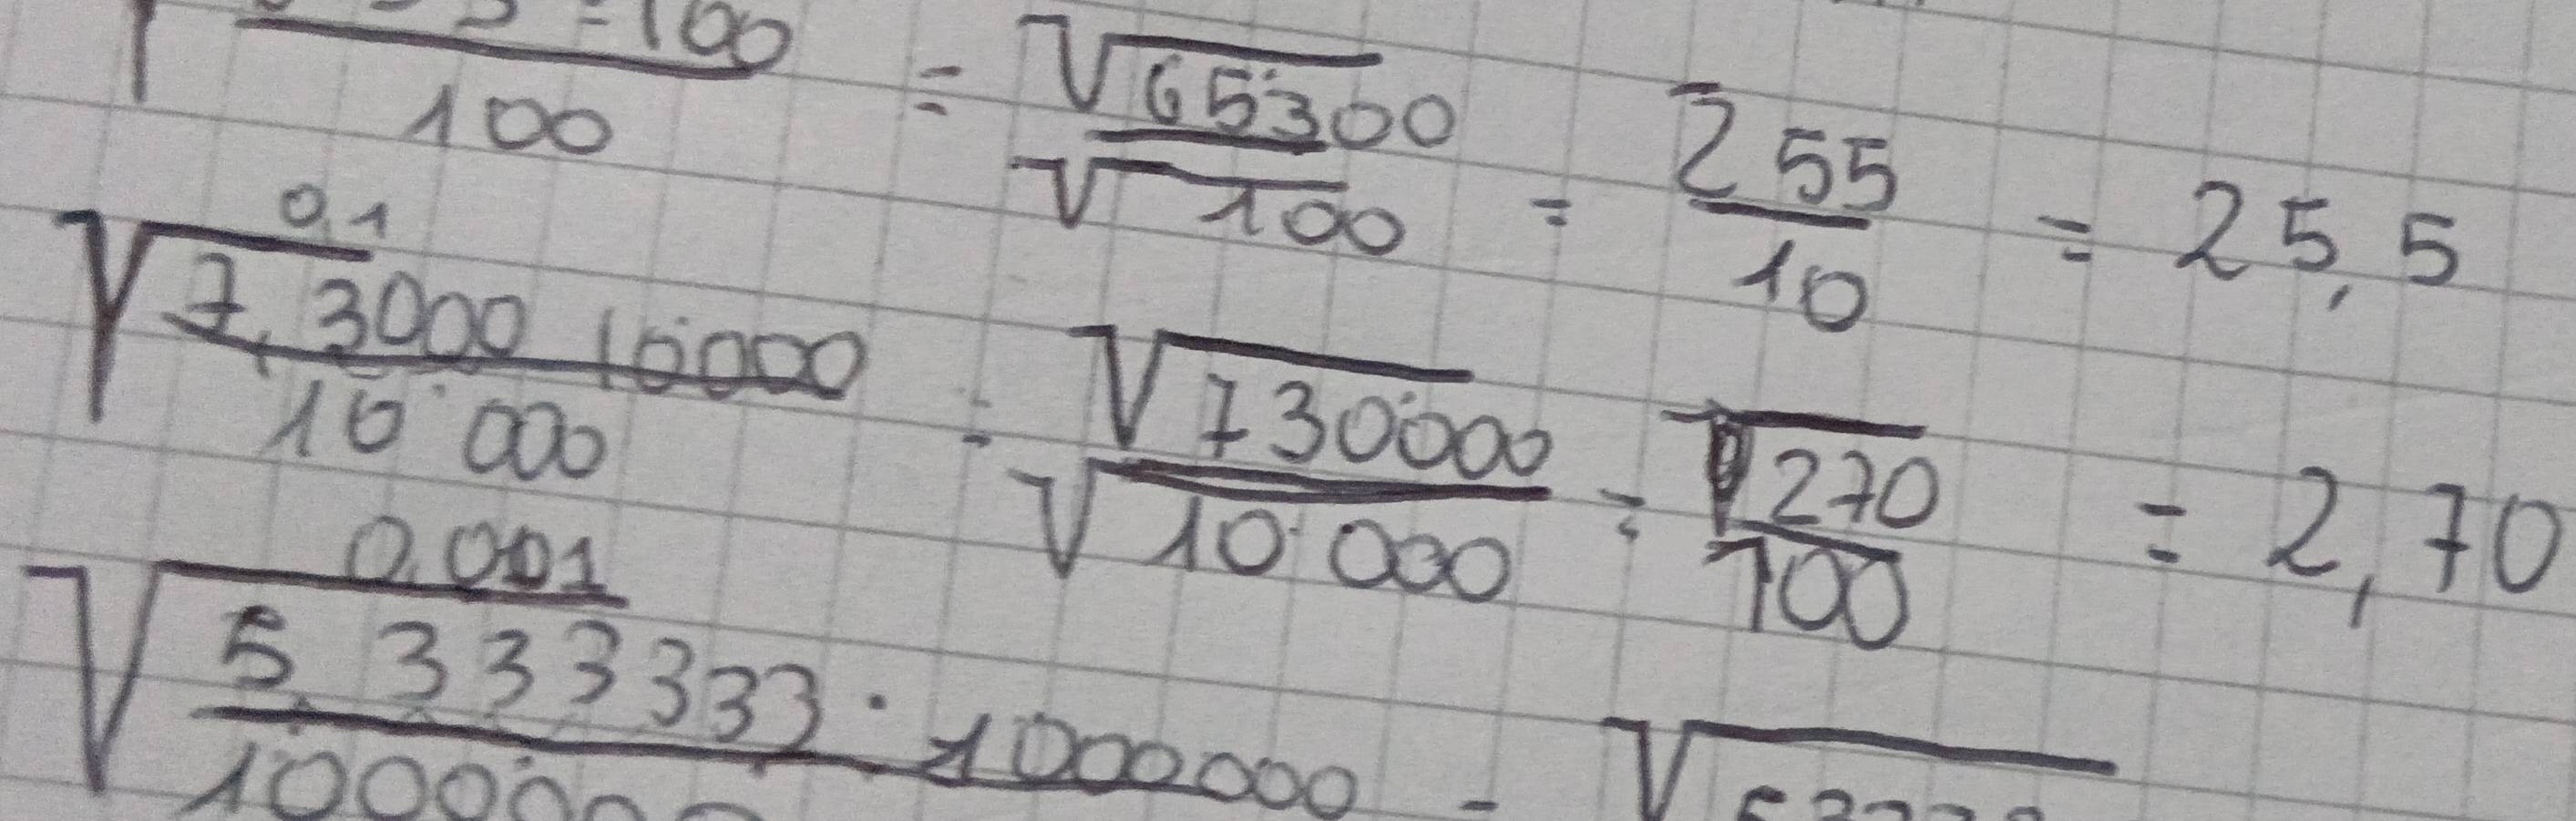 100 / 100 = √65300 / √100 = 255 / 10 = 25,5
0,1
√7,3000 10000 / 10 000 = √730000 / √10 000 = √270 / 100 = 2,70
0,001
√5,333333 · 1000000 / 1000000 = √